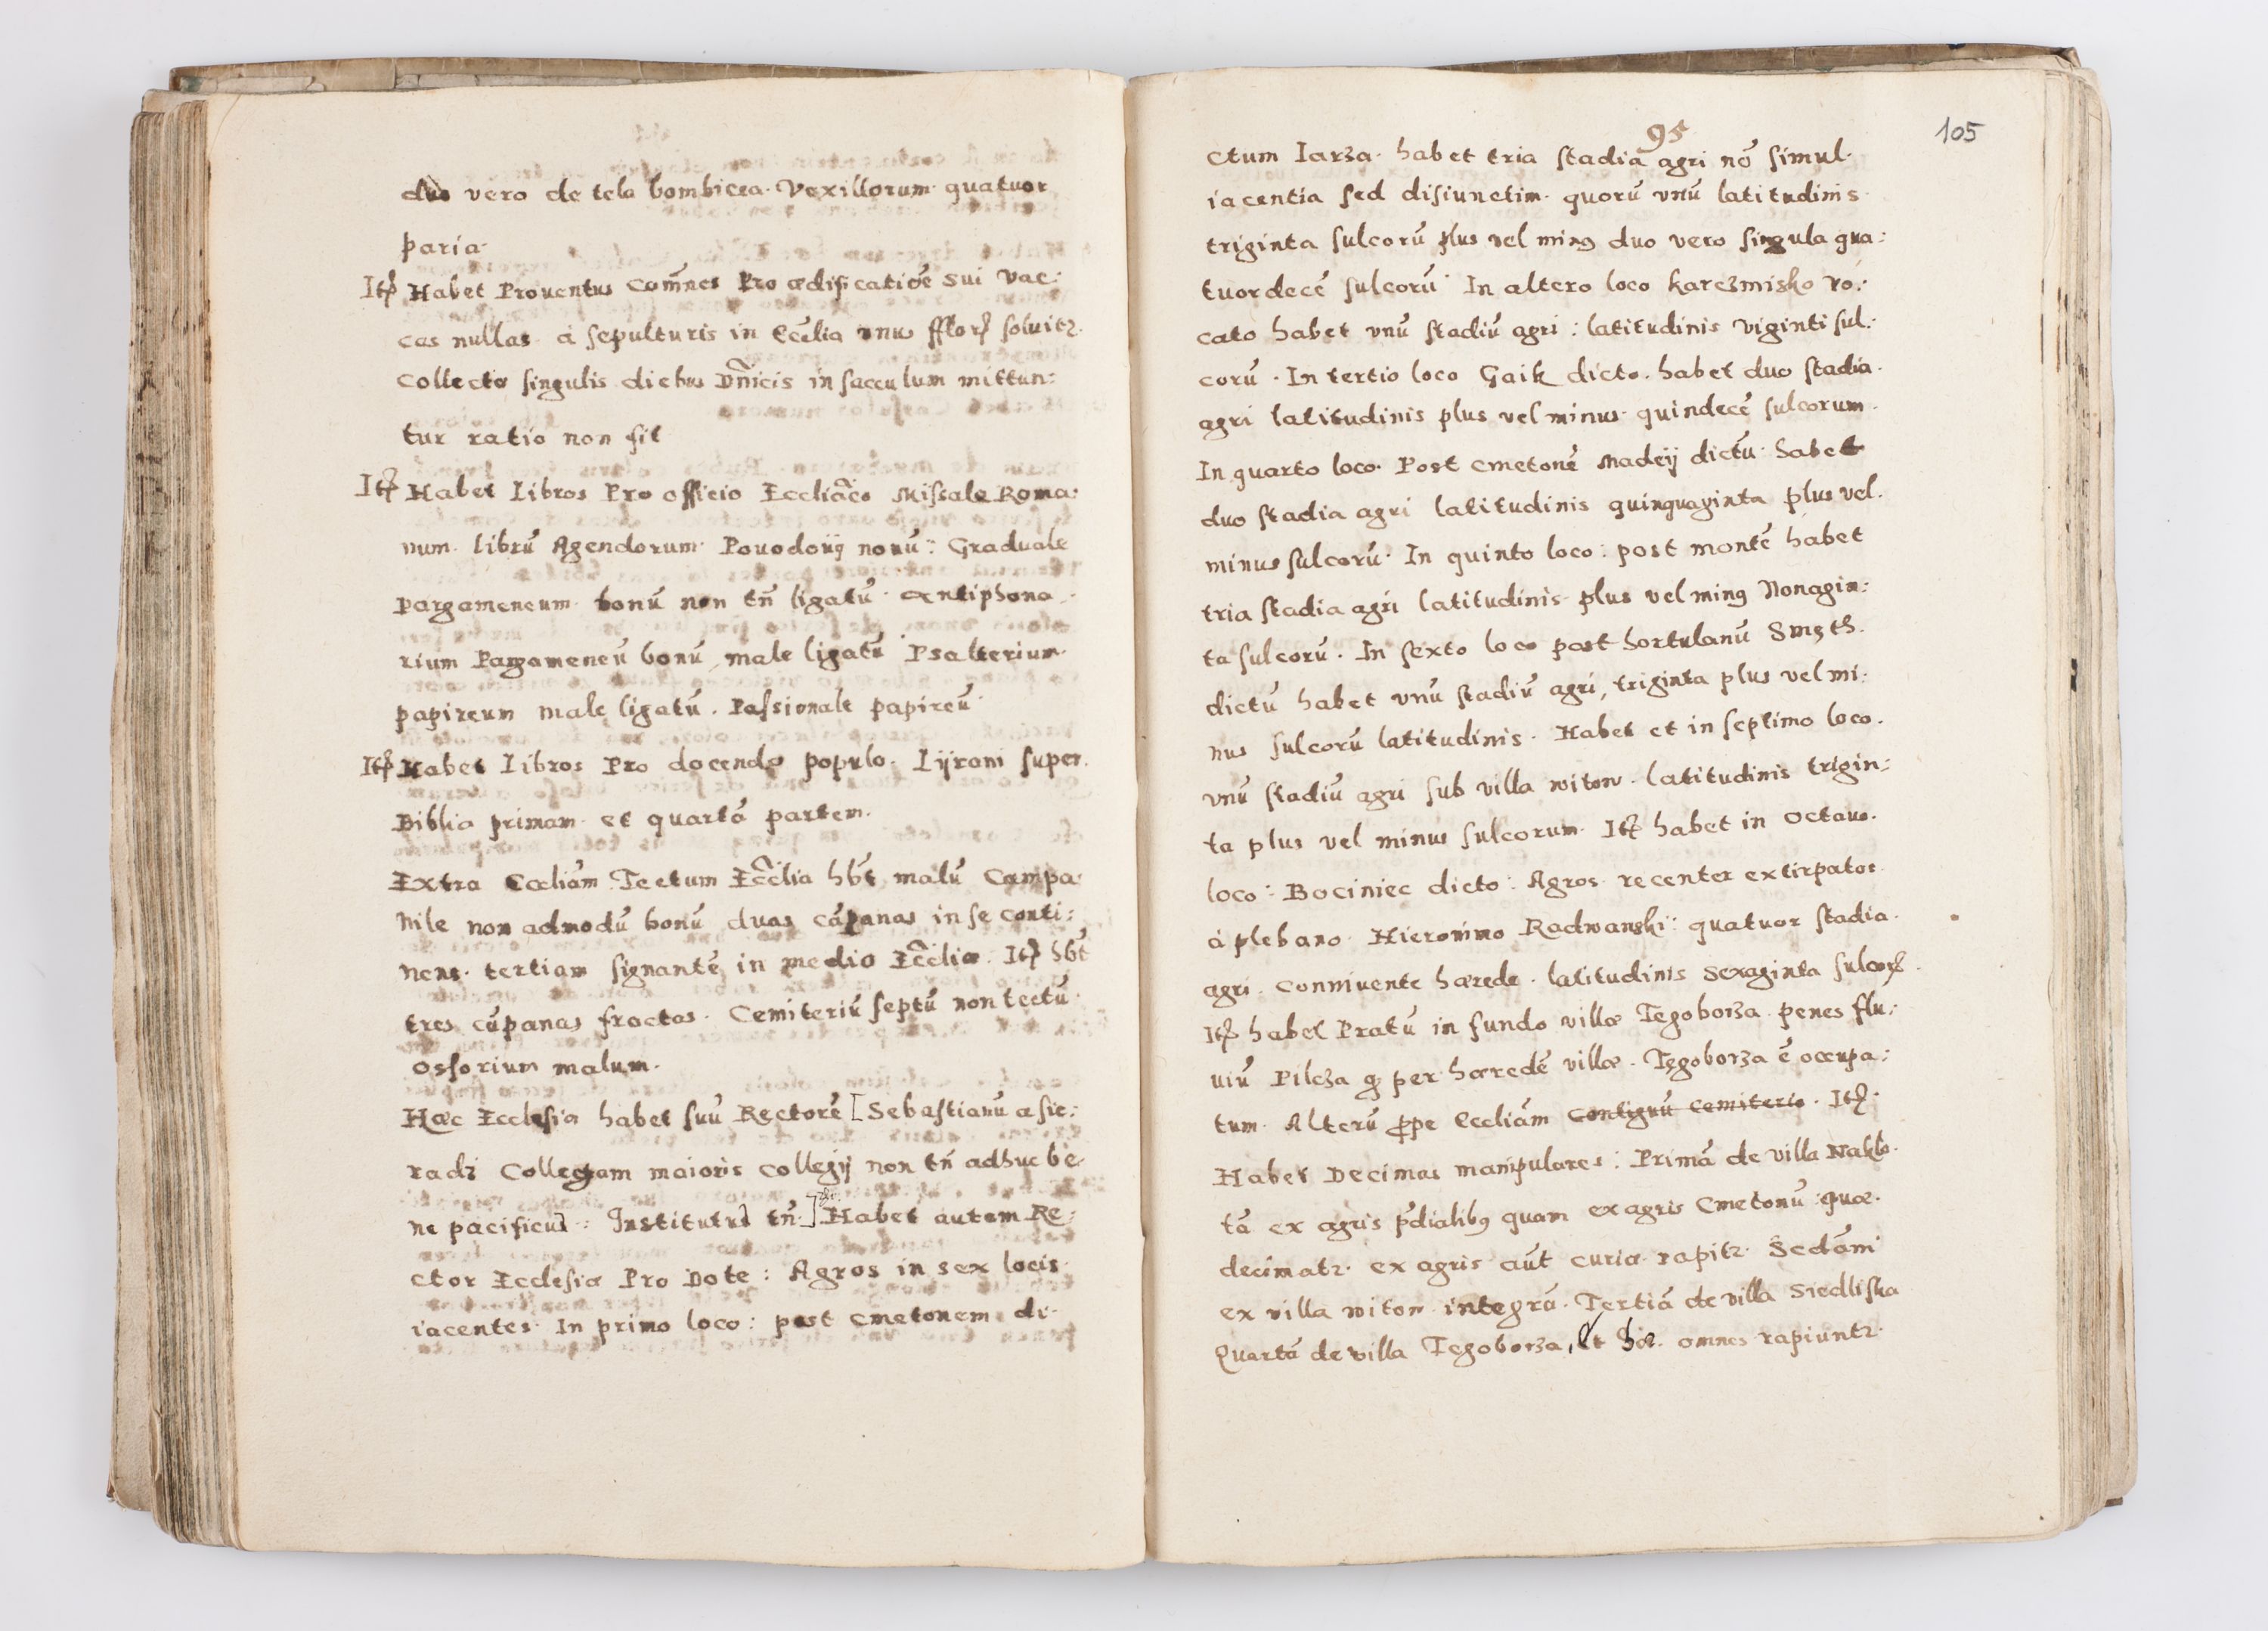 duo vero de tela bombicea. Vexillorum quatuor
paria.
Itẽ Habet Prouentus Com̃nes Pro ædificatiõe sui vac:
cas nullas à sepulturis in Eccłia vnus fflorꝫ soluitꝛ.
Collecta singulis diebus Dñicis in sacculum mittun:
tur ratio non fit
Itẽ Habet Libros Pro officio Eccliãco Missale Roma:
num. librũ Agendorum Pouodoiij nouũ: Graduale
pargameneum bonũ non tñ ligatũ. antiphona
rium Pargameneũ bonũ male ligatũ Psalterium
papireum male ligatũ. Passionale papireũ.
Itẽ Habet Libros Pro docendo populo. Lijrani super
Biblia primam et quartã partem.
Extra Eccliãm Tectum Eccl̃ia hb̃t malũ Campa
nile non admodũ bonũ duas cãpanas in se conti:
nens. tertiam signantẽ in medio Eccl̃iæ. Itẽ hb̃t
tres cãpanas fractas. Cemiteriũ septũ non tectũ.
Ossorium malum.
Hæc Ecclesia habet suũ Rectorẽ [Sebastianũ a sie:
radz Collegam maioris collegij non tñ adhuc be
ne pacificus: Institutus tñ.] Habet autem Re:
ctor Ecclesiæ Pro Dote: Agros in sex locis
iacentes. In primo loco: post cmetonem di
95
105
ctum Iarza. habet tria stadia agri nõ simul.
iacentia sed disiunctim. quorũ vnũ latitudinis
triginta sulcorũ plus vel min9 duo vero singula qua:
tuordecẽ sulcorũ. In altero loco karczmisko vo:
cato habet vnũ stadiũ agri: latitudinis viginti sul:
corũ. In tertio loco Gaik dicto. habet duo stadia.
agri latitudinis plus vel minus quindecẽ sulcorum.
In quarto loco. Post cmetonẽ Madeij dictũ habet
duo stadia agri latitudinis quinquaginta plus vel.
minus sulcorũ. In quinto loco: post montẽ habet
tria stadia agri latitudinis plus vel min9 Nonagin:
ta sulcorũ. In sexto loco post hortulanũ
dictũ habet vnũ stadiũ agri, triginta plus vel mi:
nus sulcorũ latitudinis. Habet et in septimo loco.
vnũ stadiũ agri sub villa witow. latitudinis trigin:
ta plus vel minus sulcorum. Itẽ habet in octauo.
loco: Bociniec dicto: Agros recenter extirpatos
à plebano Hieronimo Radwanski: quatuor stadia.
agri. conniuente hærede. latitudinis sexaginta sulcorꝫ.
Itẽ habet Pratũ in fundo villæ Tęgoborza penes flu:
uiũ Pilcza qȝ per hæredẽ villæ. Tęgoborza ẽ occupa:
tum. Alterũ ꝓpe Eccliãm contiguũ cemiterio. Itẽ.
Habet Decimas manipulares: Primã de villa Nakło.
tã ex agris p̃dialib9 quam ex agris Cmetonũ quæ.
decimatꝛ. ex agris aũt curiæ rapitꝛ. Scdãm
ex villa witow integrã. Tertiã de villa Siedliska
Quartã de villa Tęgoborza, et hæ. omnes rapiuntꝛ.